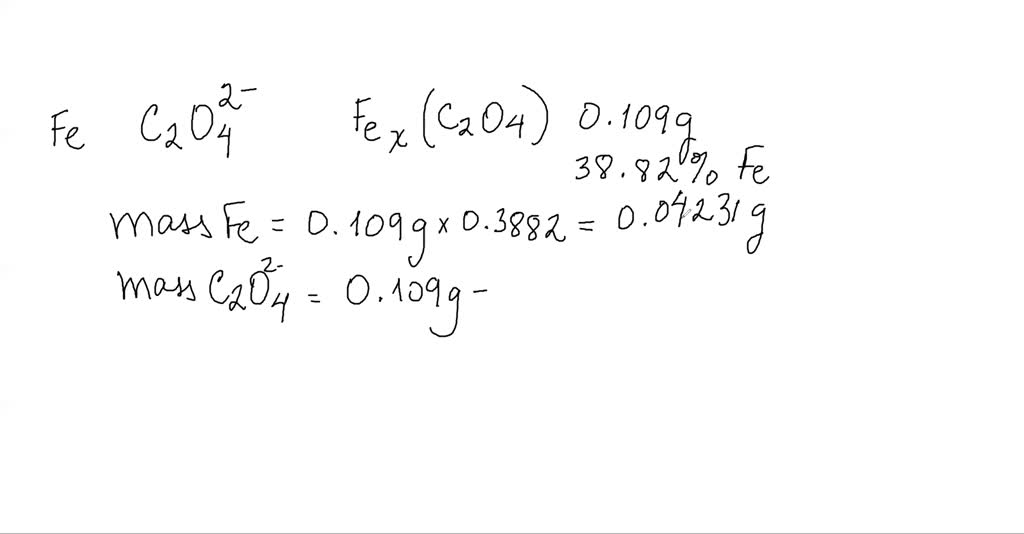 Fe C₂O₄²⁻ Feₓ(C₂O₄) 0.109g
38.82% Fe
mass Fe = 0.109g x 0.3882 = 0.04231g
mass C₂O₄²⁻ = 0.109g -